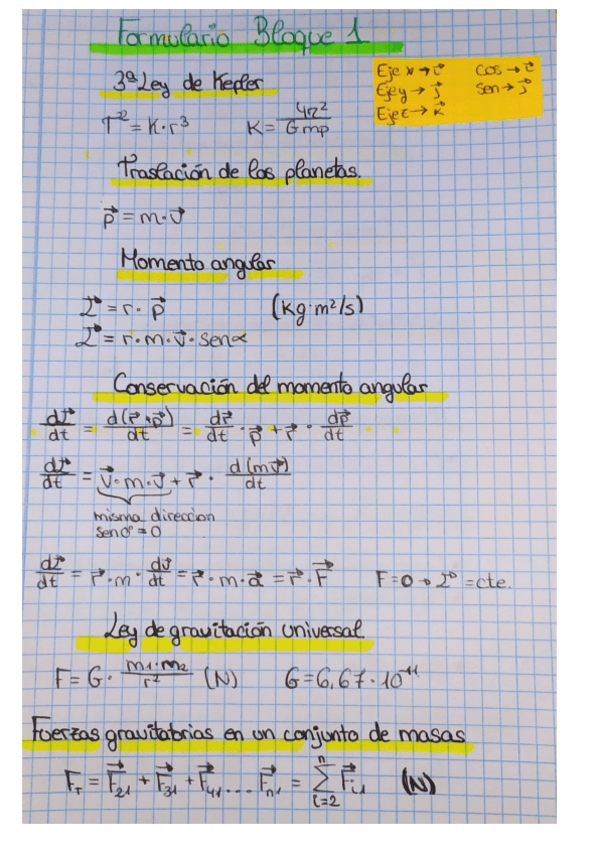 Formulario Bloque 1
3ª Ley de Kepler
Eje x → i⃗ cos → i⃗
Eje y → j⃗ sen → j⃗
Eje z → k⃗
T² = K · r³ K = 4π² / G mp
Traslación de los planetas.
p⃗ = m · v⃗
Momento angular
L⃗ = r · p⃗ (kg · m²/s)
L⃗ = r · m · v⃗ · sen α
Conservación del momento angular
dL⃗/dt = d(r⃗ · p⃗)/dt = dr⃗/dt · p⃗ + r⃗ · dp⃗/dt
dL⃗/dt = v⃗ · m · v⃗ + r⃗ · d(mv⃗)/dt
misma direccion
sen 0º = 0
dL⃗/dt = r⃗ · m · dv⃗/dt = r⃗ · m · a⃗ = r⃗ · F⃗ F = 0 → L⃗ = cte.
Ley de gravitación universal
F = G · m₁ · m₂ / r² (N) G = 6,67 · 10⁻¹¹
Fuerzas gravitatorias en un conjunto de masas
F_T = F⃗₂₁ + F⃗₃₁ + F⃗₄₁ ... F⃗n₁ = Σⁿ i=2 F⃗i₁ (N)